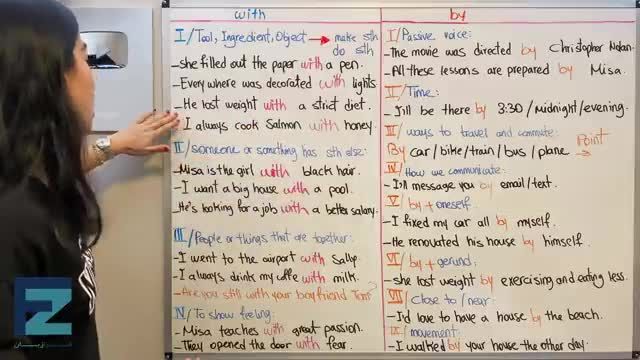 with
I/Tool, Ingredient, Object → make sth
do sth
-she filled out the paper with a pen.
-Every where was decorated with lights
-He lost weight with a strict diet.
I always cook Salmon with honey.
II/someone or something has sth else:
-Misa is the girl with black hair.
-I want a big house with a pool.
-He's looking for a job with a better salary.
III/People or things that are together:
-I went to the airport with Sally.
-I always drink my coffe with milk.
-Are you still with your boyfriend Tom?
IV/To show feeling:
-Misa teaches with great passion.
-They opened the door with fear.
by
I/Passive voice:
-The movie was directed by Christopher Nolan.
-All these lessons are prepared by Misa.
II/Time:
-I'll be there by 3:30/midnight/evening.
III/ways to travel and commute: Point
By car/bike/train/bus/plane →
IV/How we communicate:
-I'll message you by email/text.
V/by+oneself.
-I fixed my car all by myself.
-He renovated his house by himself.
VI/by+gerund:
-she lost weight by exercising and eating less.
VII/Close to/near:
-I'd love to have a house by the beach.
movement:
-I walked by your house the other day.
EZ